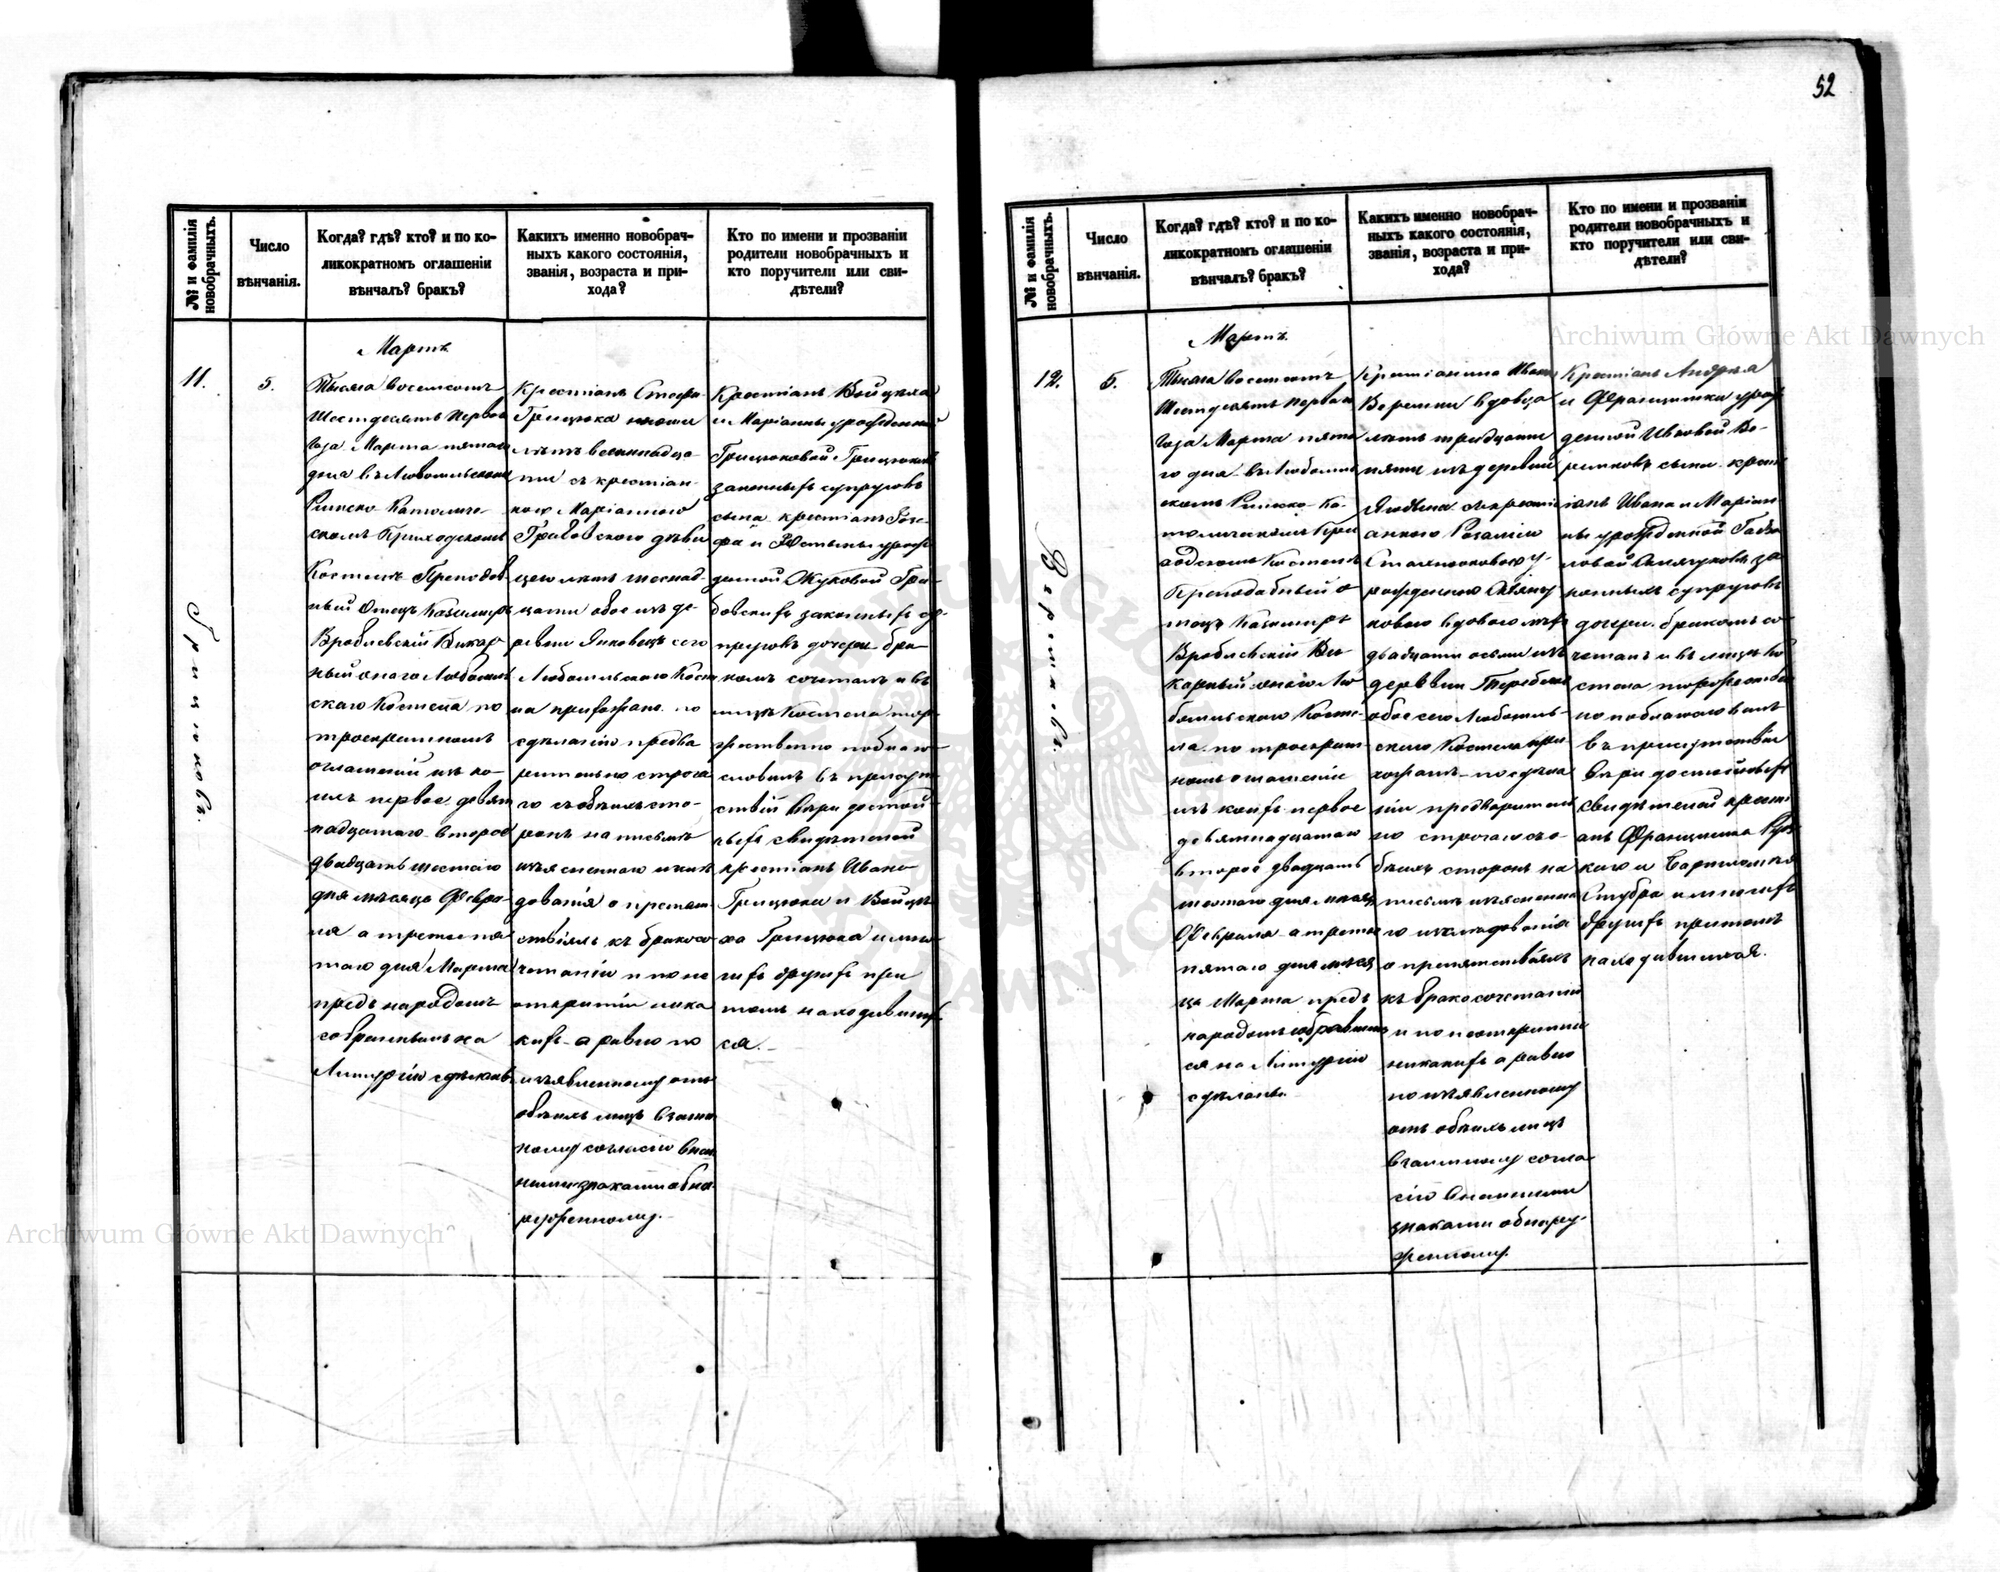 52
№ и фамилія новобрачныхъ.
Число вѣнчанія.
Когда? гдѣ? кто? и по ко-
ликократномъ оглашеніи
вѣнчалъ? бракъ?
Какихъ именно новобрач-
ныхъ какого состоянія,
званія, возраста и при-
хода?
Кто по имени и прозваніи
родители новобрачныхъ и
кто поручители или сви-
дѣтели?
11.
Грицюковъ.
5.
Мартъ
Тысяча восемсотъ
Шестдесятъ перваго
года Марта пятаго
дня въ Любомльскомъ
Римско Католиче-
скомъ Приходскомъ
Костелѣ Преподоб
ный Отецъ Казимиръ
Врублевскій Викар
ный онаго Любомль
скаго Костела по
троекратномъ
оглашеній изъ ко-
ихъ первое девят
надцатаго второе
двадцать шестаго
дня мѣсяца Февра-
ля а третье пя
таго дня Марта
предъ народомъ
собравшимся на
Литургію сдѣланъ
Крестьянъ Стефа
Грицюка юноши
лѣтъ восемнадца-
ти съ крестіан-
кою Маріанною
Грабовскою дѣви
цею лѣтъ шеснад-
цати обое изъ де-
ревни Янковецъ сего
Любомльскаго Косте
ла прихожанъ по
сдѣланію предва
рительно строга
го съ обѣихъ сто-
ронъ на письмѣ
изъясненнаго изслѣ
дованія о препят
ствіяхъ къ бракосо
четанію и по не
открытіи ника
кихъ а равно по
изъявленному отъ
обѣихъ лицъ взаим
ному согласію внѣш
ними знаками обна
руженному.
Крестіанъ Войцѣха
и Маріанны урожденной
Грицюковой Грицюковъ
законныхъ супруговъ
сына, крестіанъ Іосе-
фа и Юстыны урож
денной Жуковой Гра-
бовскихъ законныхъ су-
пруговъ дочерью бра
комъ сочеталъ и въ
лицѣ Костела тор-
жественно поблаго-
словилъ въ присут
ствіи вѣри достой-
ныхъ свидѣтелей
крестіанъ Ивана
Грицюка и Войцѣ
ха Грицюка и мно
гихъ другихъ при
томъ находившихъ
ся.
№ и фамилія новобрачныхъ.
Число вѣнчанія.
Когда? гдѣ? кто? и по ко-
ликократномъ оглашеніи
вѣнчалъ? бракъ?
Какихъ именно новобрач-
ныхъ какого состоянія,
званія, возраста и при-
хода?
Кто по имени и прозваніи
родители новобрачныхъ и
кто поручители или сви-
дѣтели?
12.
5.
Мартъ.
Тысяча восемсотъ
Шестдесятъ перваго
года Марта пята
го дня въ Любомль
скомъ Римско-Ка-
толическомъ При
ходскомъ Костелѣ
Преподобный о
тецъ Казимиръ
Врублевскій Ви
карный онаго Лю
бомльскаго Косте-
ла по троекрат
номъ оглашеніи
изъ коихъ первое
девятнадцатаго
второе двадцать
шестаго дня мѣсяца
Февраля а третье
пятаго дня мѣся
ца Марта предъ
народомъ собравшим
ся на Литургію
сдѣланъ.
вдовца
лѣтъ тридцати
пяти изъ деревни
двадцати осьми изъ
деревни
обое сего Любомль-
скаго Костела при
хожанъ по сдѣла
ніи предварительн
но строгаго съ о-
бѣихъ сторонъ на
письмѣ изъясненна
го изслѣдованія
о препятствіяхъ
къ бракосочетанію
и по неоткрытіи
никакихъ а равно
по изъявленному
отъ обѣихъ лицъ
взаимному согла
сію внѣшними
знаками обнару-
женному.
Крестіанъ Андрея
и Францишки урож
сына крест
іанъ Ивана и Маріан
ны урожденной
законныхъ супруговъ
дочерью бракомъ со
четалъ и въ лицѣ Ко
стела торжествен
но поблагословилъ
въ присутствіи
вѣри достойныхъ
свидѣтелей крест
анъ Францишка
и многихъ
другихъ притомъ
находившихся.
Archiwum Główne Akt Dawnych
Archiwum Główne Akt Dawnych